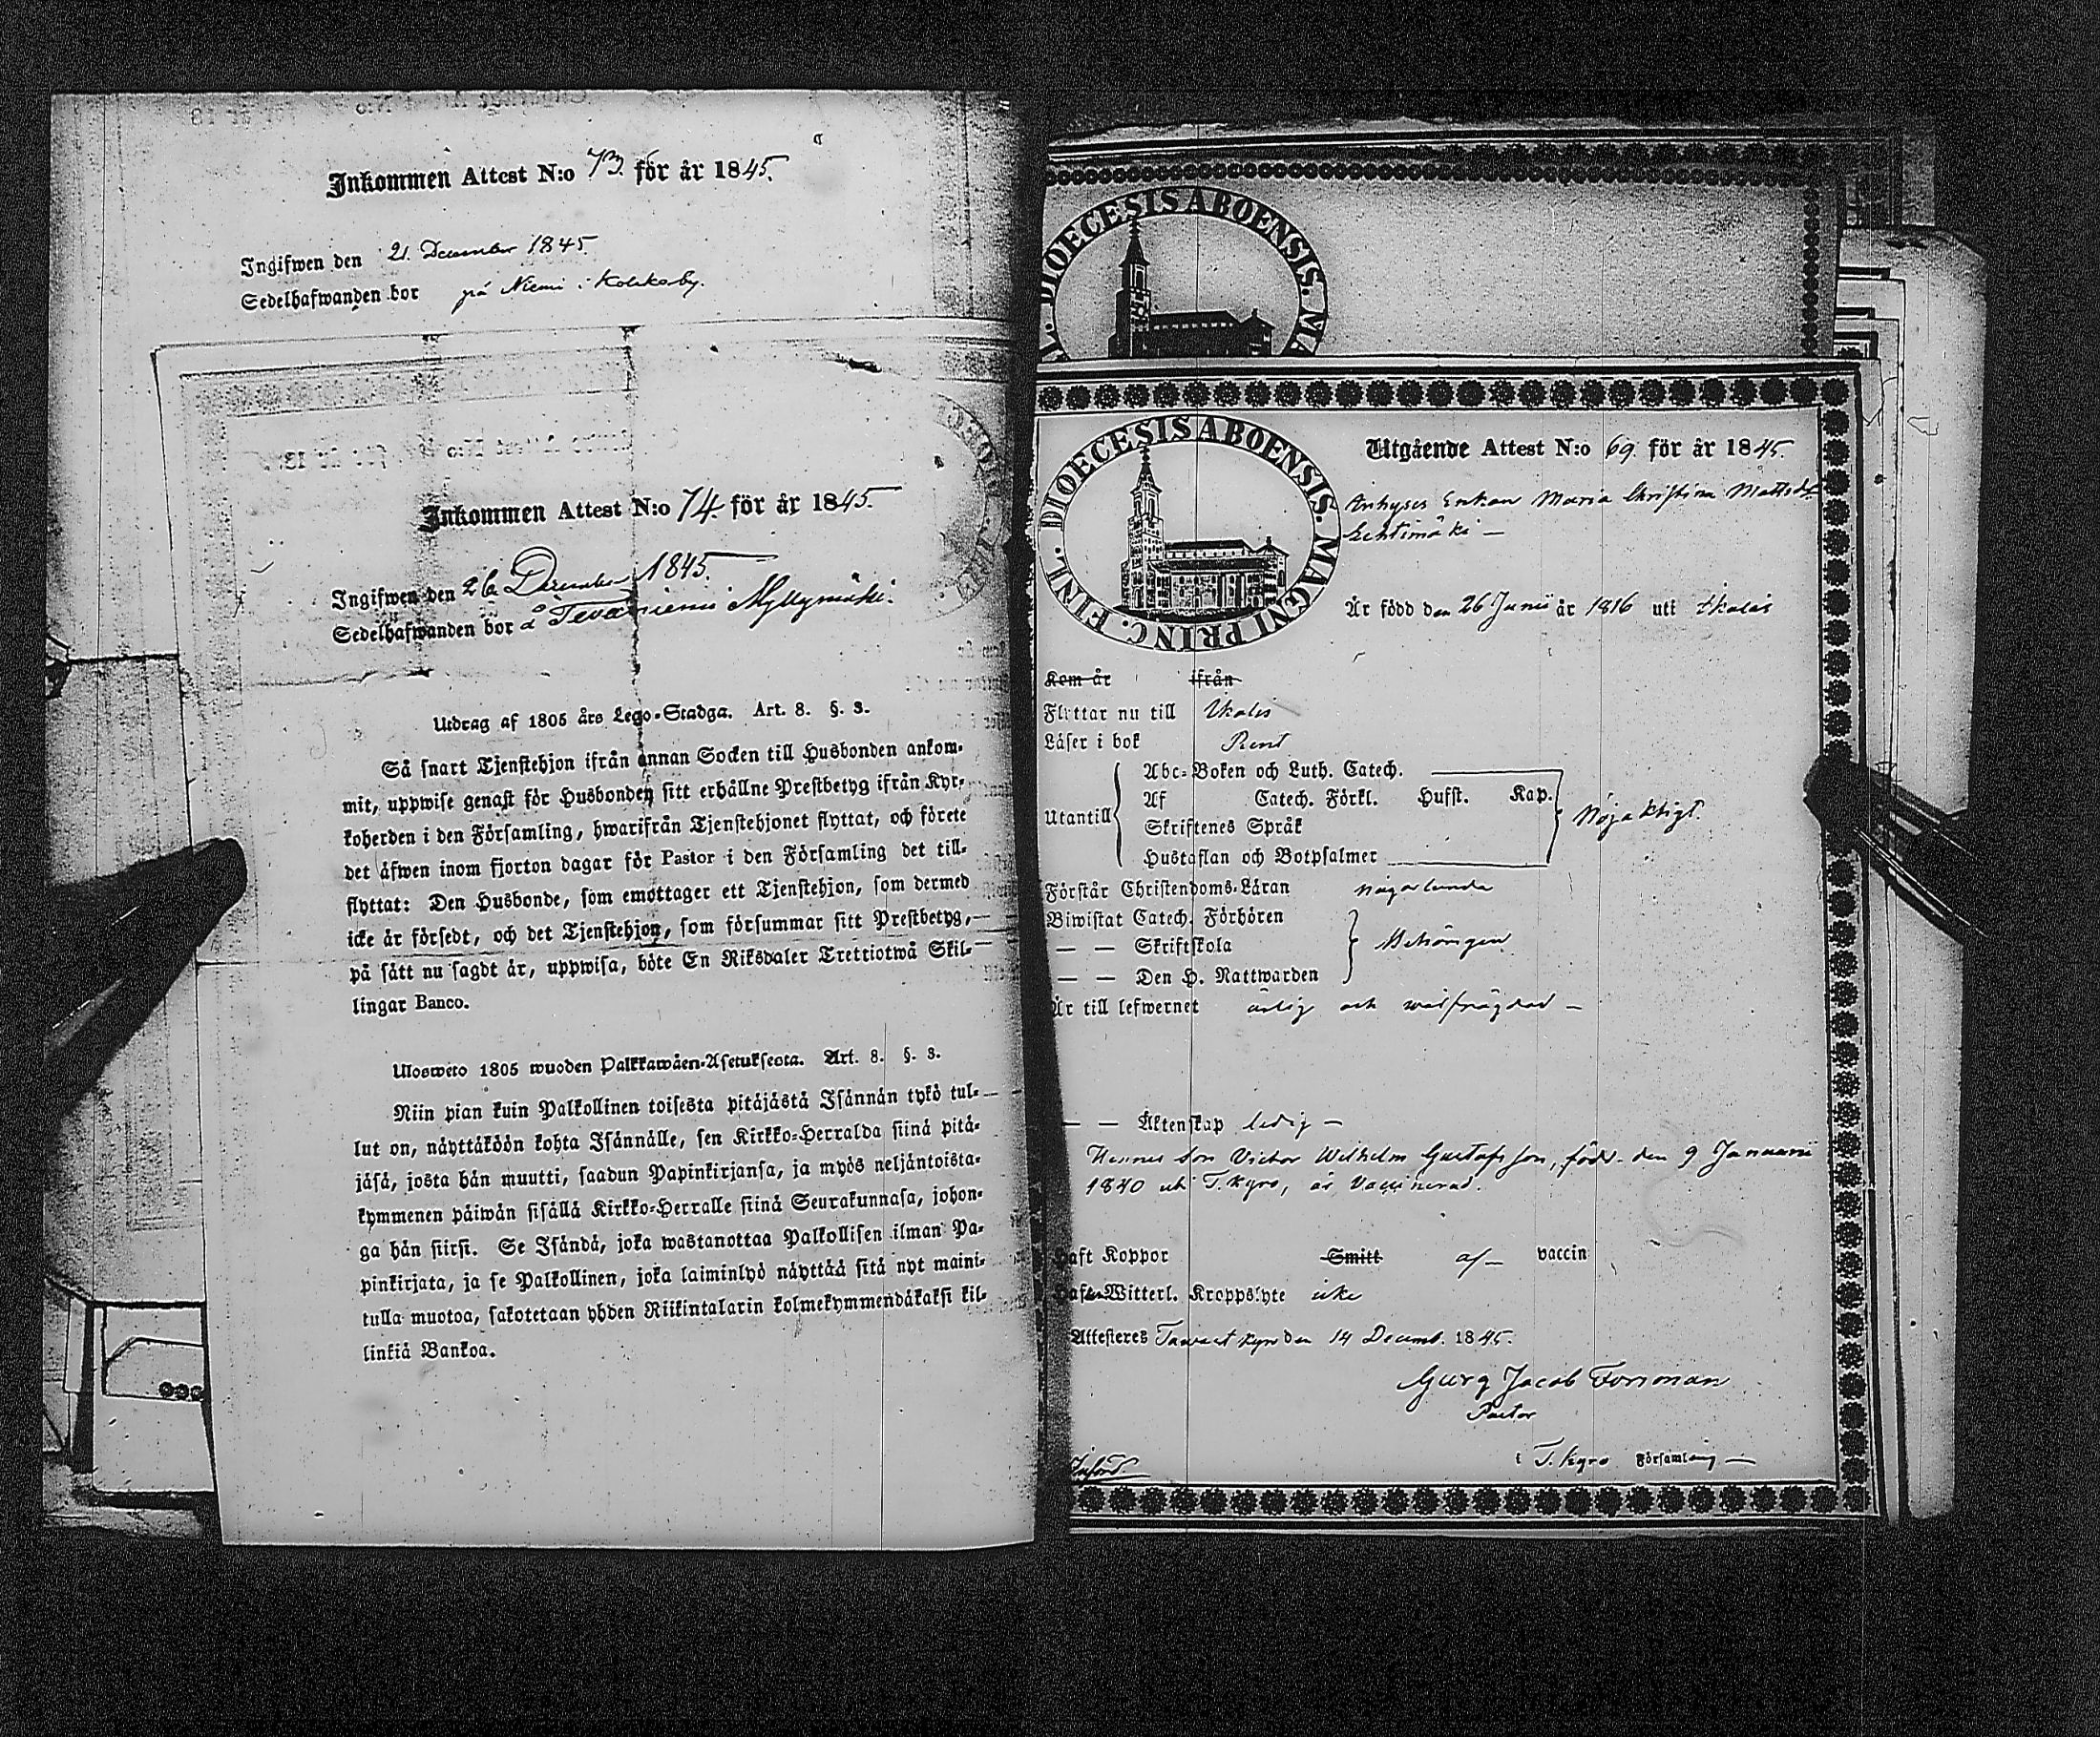 Inkommen Attest N:o 73. för år 1845.
Ingifwen den 21 December 1845.
Sedelhafwanden bor på Niemi i Kolckaby.
Inkommen Attest N:o 74. för år 1845.
Ingifwen den 26 December 1845.
Sedelhafwanden bor å Tevaniemi Myllymäki.
Utdrag af 1805 års Lego-Stadga. Art. 8. §. 3.
Så snart Tjenstehjon ifrån annan Socken till Husbonden ankom-
mit, uppwise genast för Husbonden sitt erhållne Prestbetyg ifrån Kyr-
koherden i den Församling, hwarifrån Tjenstehjonet flyttat, och förete
det äfwen inom fjorton dagar för Pastor i den Församling det till-
flyttat: Den Husbonde, som emottager ett Tjenstehjon, som dermed
icke är försedt, och det Tjenstehjon, som försummar sitt Prestbetyg,
på sätt nu sagdt är, uppwisa, böte En Riksdaler Trettiotwå Skil-
lingar Banco.
Uloswéto 1805 wuoden Palkkawäen-Asetuksesta. Art. 8. §. 3.
Niin pian kuin Palkollinen toisesta pitäjästä Isännän tykö tul-
lut on, näyttäköön kohta Isännälle, sen Kirkko-Herralda siinä pitä-
jäsä, josta hän muutti, saadun Papinkirjansa, ja myös neljäntoista-
kymmenen päiwän sisällä Kirkko-Herralle siinä Seurakunnasa, johon-
ga hän siirsi. Se Isändä, joka wastanottaa Palkollisen ilman Pa-
pinkirjata, ja se Palkollinen, joka laiminlyö näyttää sitä nyt maini-
tulla muotoa, sakotetaan yhden Riikintalarin kolmekymmendäkaksi kil-
linkiä Bankoa.
DIOECESIS ABOENSIS. MA
DIOECESIS ABOENSIS. MAGNI PRINC. FINL.
Utgående Attest N:o 69. för år 1845.
Inhyses Enkan Maria Christina Mattsdr
Lehtimäki —
Är född den 26 Junii år 1816 uti Ikalis
Kom år ifrån
Flyttar nu till Ikalis
Läser i bok Rent
Abc-Boken och Luth. Catech.
Utantill Af Catech. Förkl. Husst. Kap. Nöjaktigt.
Skriftenes Språk
Hustaflan och Botpsalmer
Förstår Christendoms-Läran någorlunda
Biwistat Catech. Förhören
— — Skriftskola Behörigen
— — Den H. Nattwarden
Är till lefwernet ärlig och wälfrägdad —
— — Äktenskap ledig —
Hennes Son Victor Wilhelm Gustafsson, född den 9 Januarii
1840 uti T.kyro, är Vaccinerad.
Haft Koppor Smitt af — vaccin
Witterl. Kroppslyte icke
Attesteres Tawastkyro den 14 Decemb. 1845.
Georg Jacob Forsman
Pastor
i T.kyro Församling —
Införd.